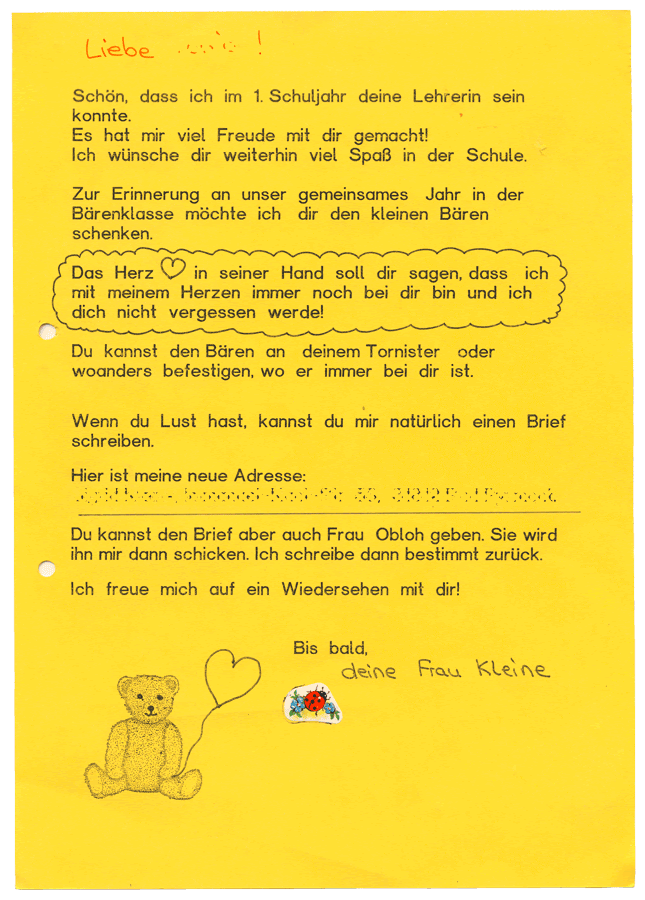 Liebe !
Schön, dass ich im 1. Schuljahr deine Lehrerin sein
konnte.
Es hat mir viel Freude mit dir gemacht!
Ich wünsche dir weiterhin viel Spaß in der Schule.
Zur Erinnerung an unser gemeinsames Jahr in der
Bärenklasse möchte ich dir den kleinen Bären
schenken.
Das Herz in seiner Hand soll dir sagen, dass ich
mit meinem Herzen immer noch bei dir bin und ich
dich nicht vergessen werde!
Du kannst den Bären an deinem Tornister oder
woanders befestigen, wo er immer bei dir ist.
Wenn du Lust hast, kannst du mir natürlich einen Brief
schreiben.
Hier ist meine neue Adresse:
Du kannst den Brief aber auch Frau Obloh geben. Sie wird
ihn mir dann schicken. Ich schreibe dann bestimmt zurück.
Ich freue mich auf ein Wiedersehen mit dir!
Bis bald,
deine Frau Kleine